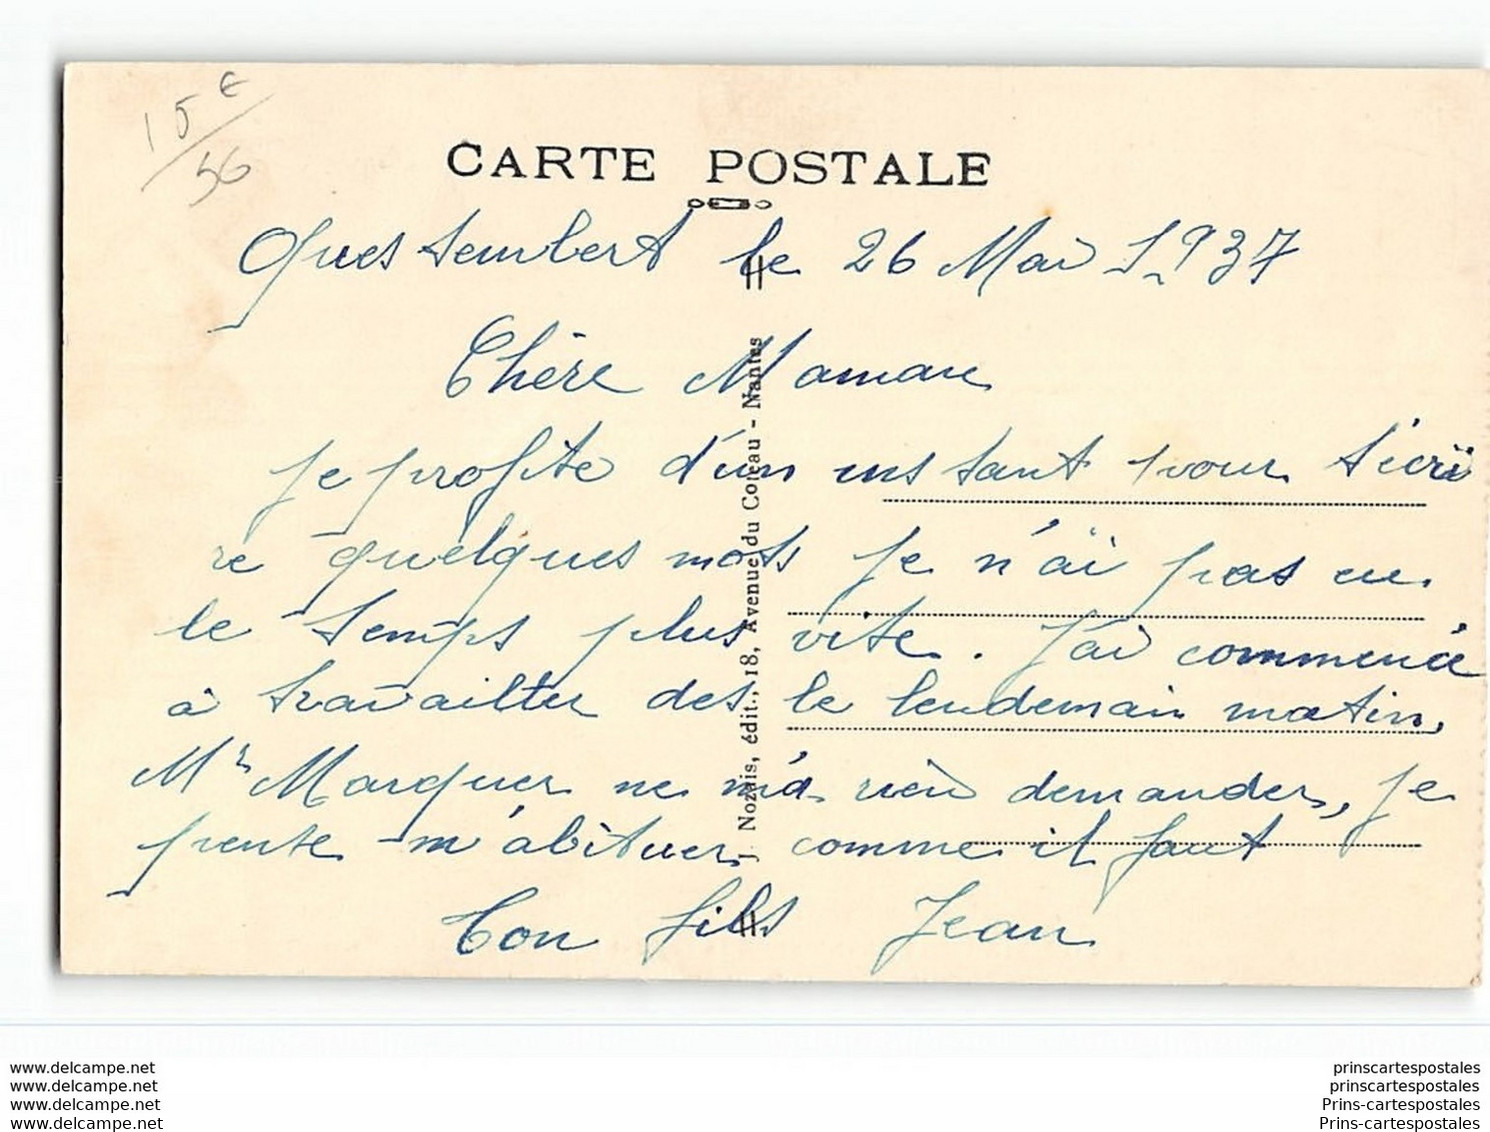 15 €
56
CARTE POSTALE
Questembert le 26 Mai 1937
Chère Maman
Je profite d'un instant pour t'écri
re quelques mots Je n'ai pas eu
le temps plus vite. J'ai commencé
à travailler des le lendemain matin,
Mr Marquer ne m'a rien demander, je
pente m'abituer comme il faut
Ton fils Jean
J. Nozais, édit., 18, Avenue du Coteau - Nantes
www.delcampe.net
www.delcampe.net
www.delcampe.net
www.delcampe.net
prinscartespostales
prinscartespostales
Prins-cartespostales
Prins-cartespostales